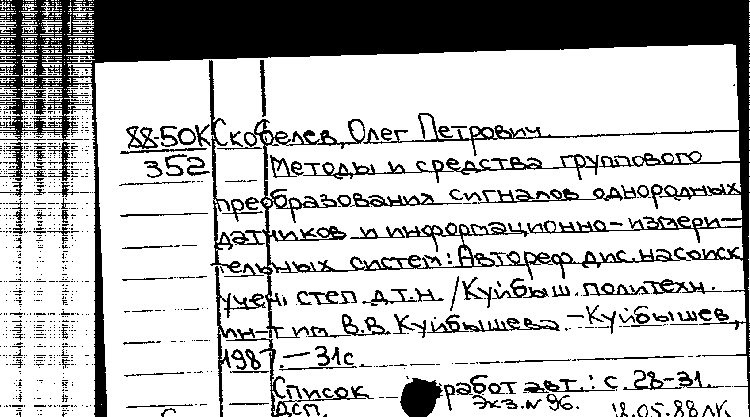 88-50К Скобелев, Олег Петрович.
352 Методы и средства группового
преобразования сигналов однородных
датчиков и информационно-измери-
тельных систем: Автореф. дис. на соиск.
учен. степ. д.т.н. /Куйбыш. политехн.
ин-т им. В.В. Куйбышева. - Куйбышев,
1987. - 31с.
Список работ авт.: с. 28-31.
ДСП. Экз. N 96. 18.05.88